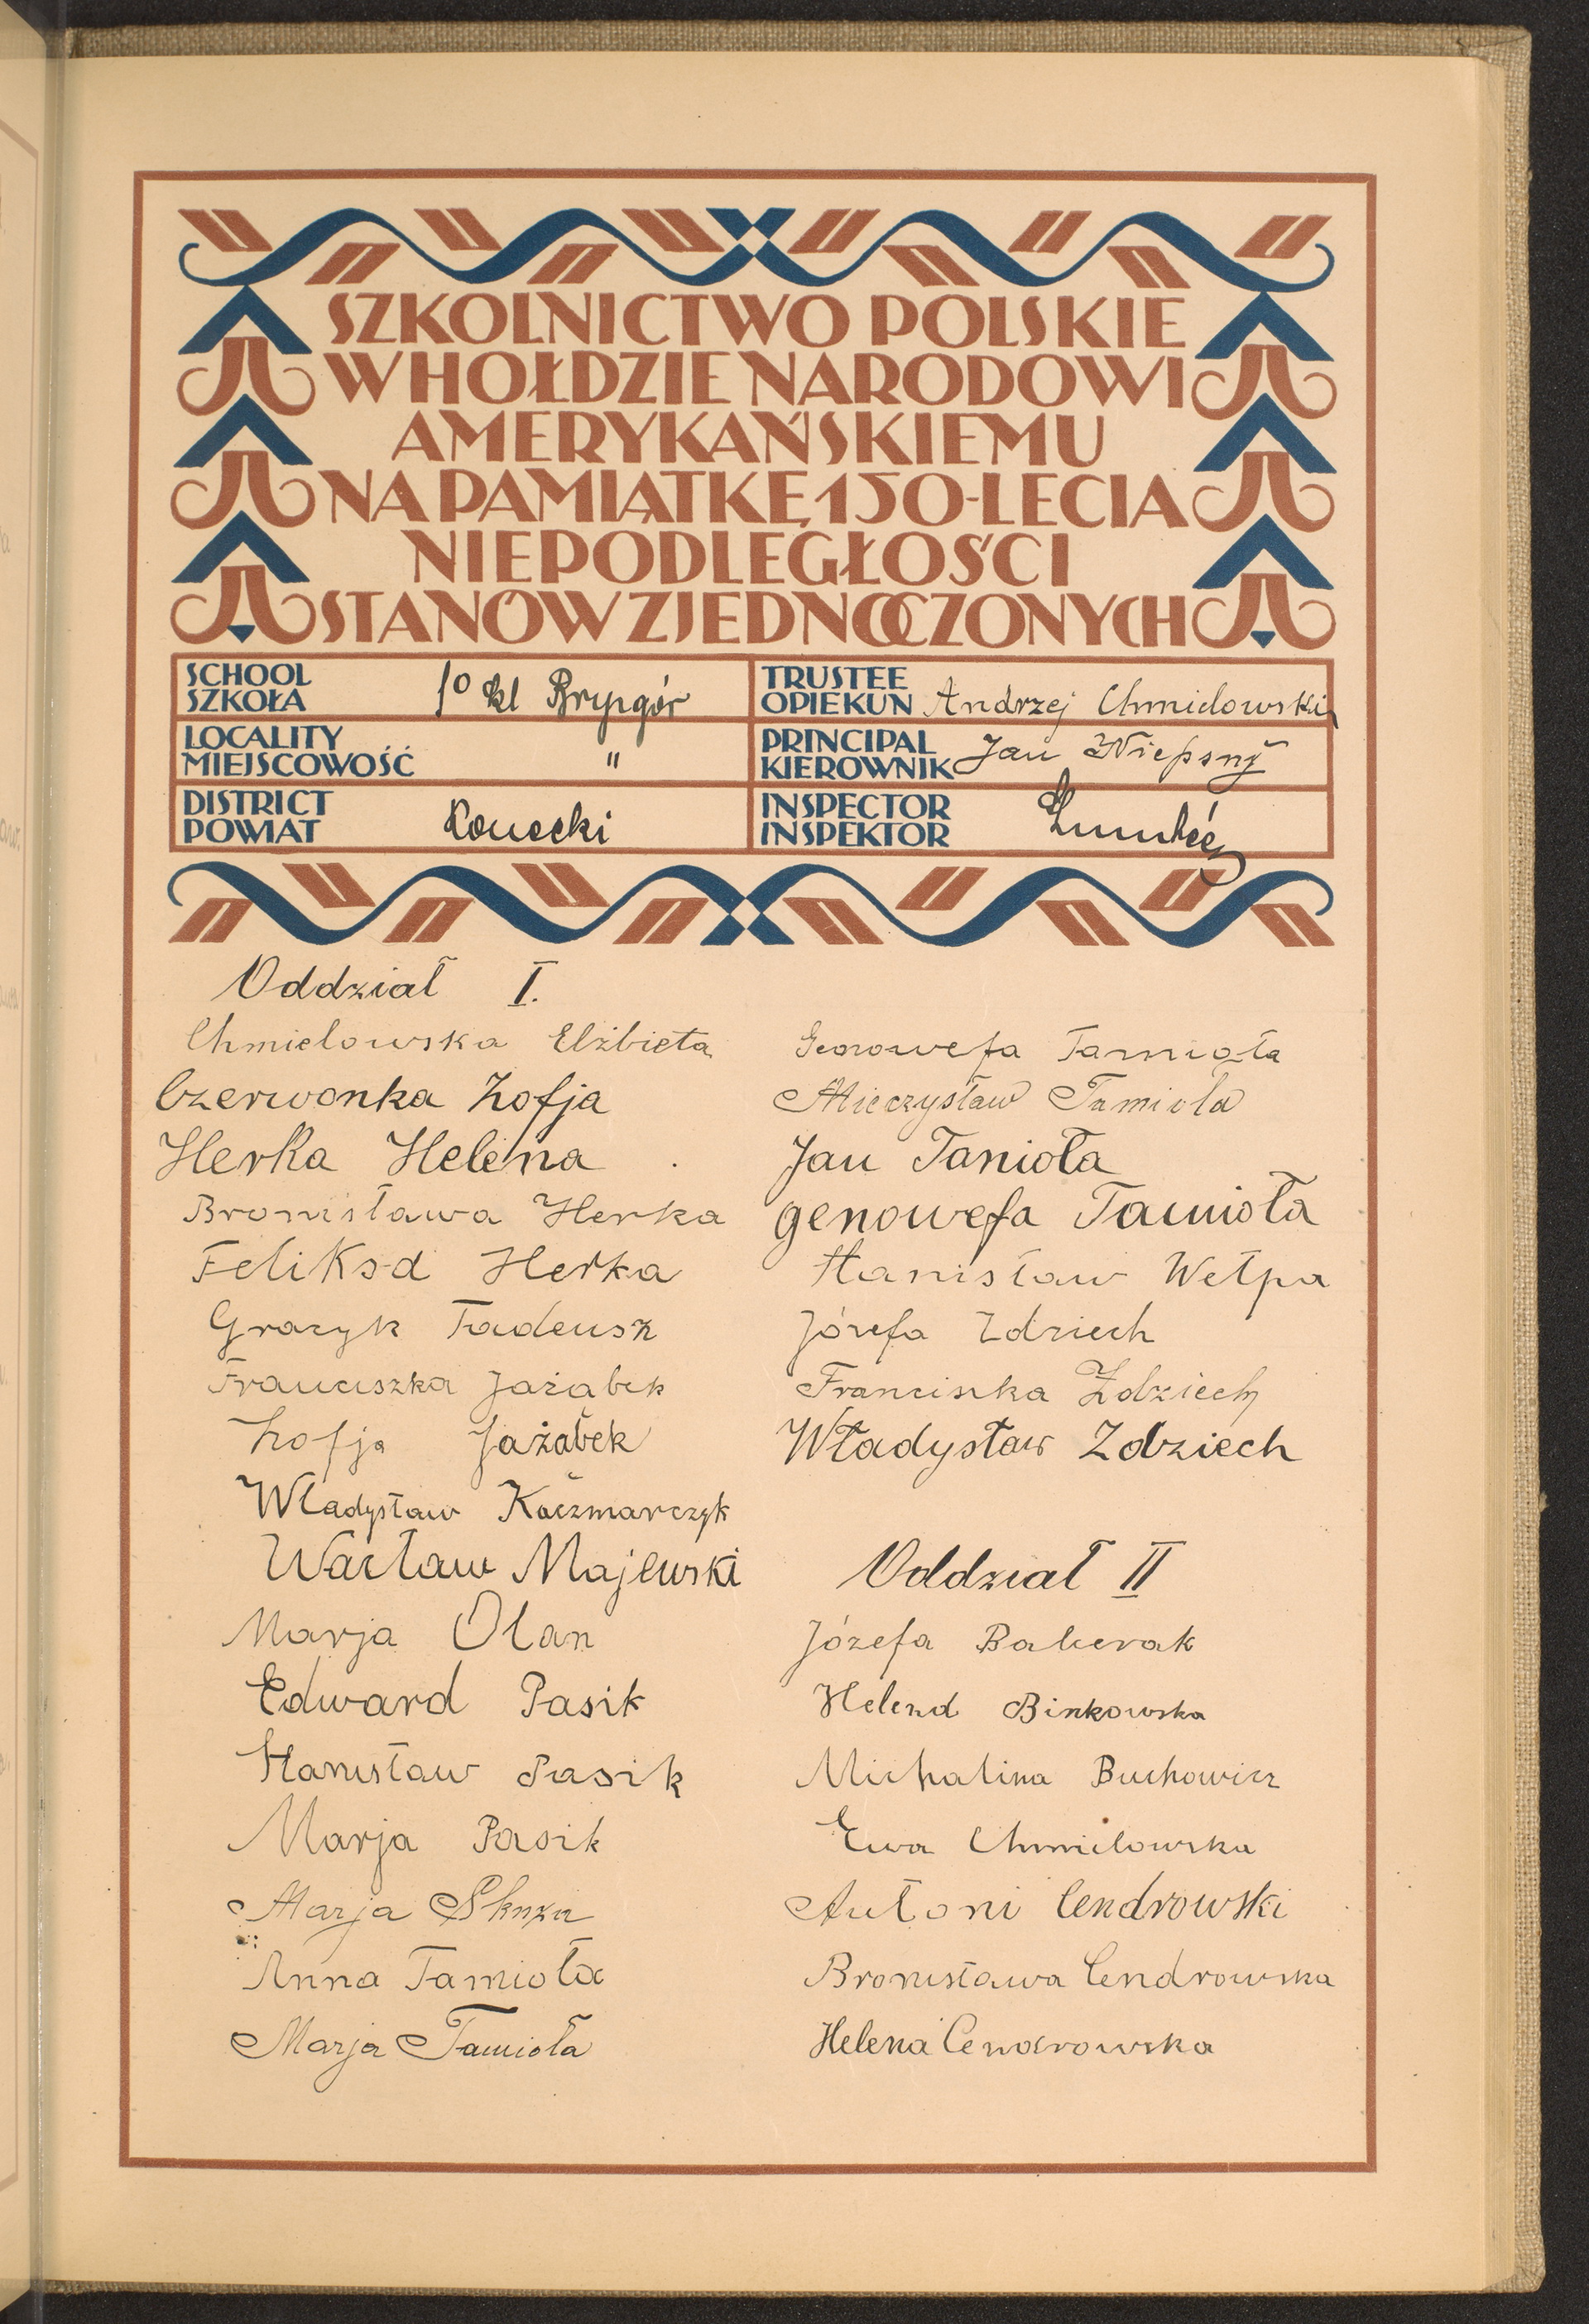 SZKOLNICTWO POLSKIE
W HOŁDZIE NARODOWI
AMERYKAŃSKIEMU
NA PAMIĄTKĘ 150-LECIA
NIEPODLEGŁOŚCI
STANÓW ZJEDNOCZONYCH
SCHOOL
SZKOŁA 1º kl Brypgór
TRUSTEE
OPIEKUN Andrzej Chmielowski
LOCALITY
MIEJSCOWOŚĆ "
PRINCIPAL
KIEROWNIK Jan Niepsnÿ
DISTRICT
POWIAT Konecki
INSPECTOR
INSPEKTOR
Oddział I.
Chmielowska Elżbieta
Czerwonka Zofja
Herka Helena
Bronisława Herka
Feliksa Herka
Graczyk Tadeusz
Franciszka Jażąbek
Zofja Jażąbek
Władysław Kaczmarczyk
Wacław Majewski
Marja Olan
Edward Pasik
Stanisław Pasik
Marja Pasik
Marja Skuza
Anna Tamioła
Marja Tamioła
Genowefa Tamioła
Mieczysław Tamioła
Jan Tanioła
genowefa Tamioła
Stanisław Wełpa
Józefa Zdziech
Franciszka Zdziech
Władysław Zdziech
Oddział II
Józefa Balcerak
Helena Binkowska
Michalina Buchowicz
Ewa Chmielowska
Antoni Cendrowski
Bronisława Cendrowska
Helena Cendrowska